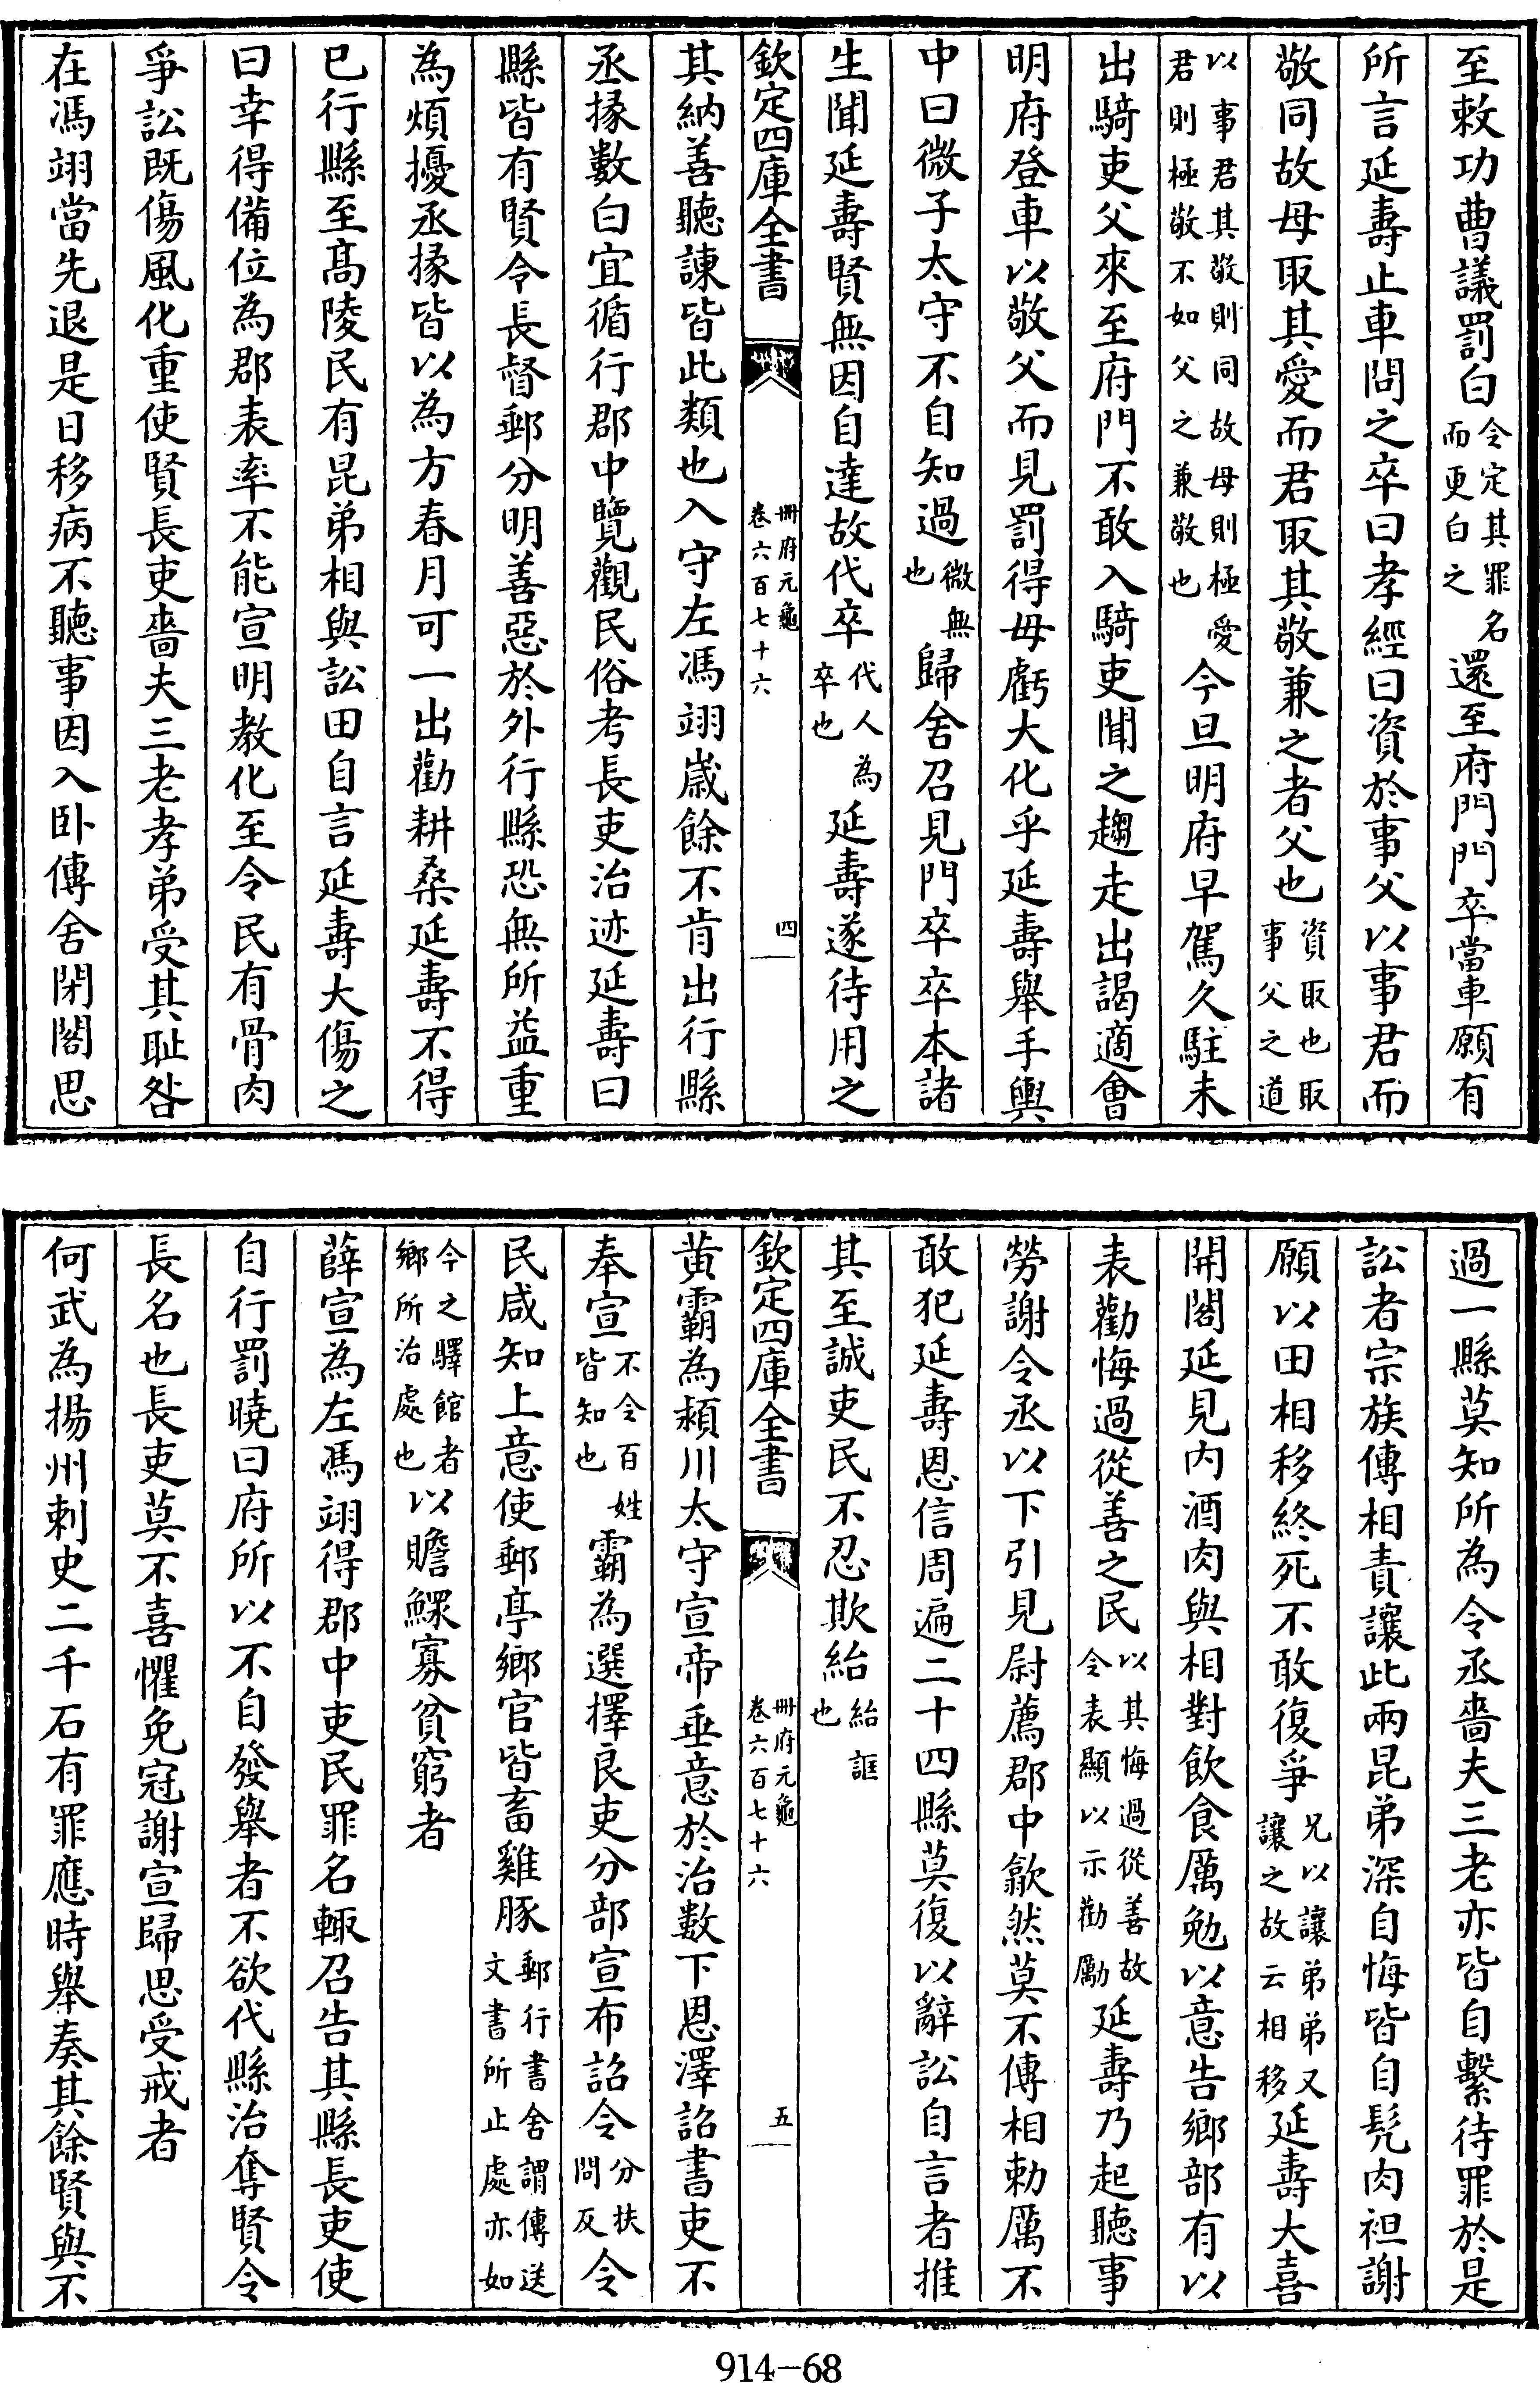 至敕功曹議罰白令定其罪名而更白之還至府門門卒當車願有
所言延壽止車問之卒曰孝經曰資於事父以事君而
敬同故母取其愛而君取其敬兼之者父也資取也取事父之道
以事君其敬則同故母則極愛君則極敬不如父之兼敬也今旦明府早駕久駐未
出騎吏父來至府門不敢入騎吏聞之趨走出謁適會
明府登車以敬父而見罰得毋虧大化乎延壽舉手輿
中曰微子太守不自知過微無也歸舍召見門卒卒本諸
生聞延壽賢無因自達故代卒代人為卒也延壽遂待用之
欽定四庫全書 冊府元龜卷六百七十六 四
其納善聽諫皆此類也入守左馮翊歲餘不肯出行縣
丞掾數白宜循行郡中覽觀民俗考長吏治迹延壽曰
縣皆有賢令長督郵分明善惡於外行縣恐無所益重
為煩擾丞掾皆以為方春月可一出勸耕桑延壽不得
已行縣至高陵民有昆弟相與訟田自言延壽大傷之
曰幸得備位為郡表率不能宣明教化至令民有骨肉
爭訟既傷風化重使賢長吏嗇夫三老孝弟受其恥咎
在馮翊當先退是日移病不聽事因入卧傳舍閉閤思
過一縣莫知所為令丞嗇夫三老亦皆自繫待罪於是
訟者宗族傳相責讓此兩昆弟深自悔皆自髠肉袒謝
願以田相移終死不敢復爭兄以讓弟弟又讓之故云相移延壽大喜
開閤延見内酒肉與相對飲食厲勉以意告鄉部有以
表勸悔過從善之民以其悔過從善故令表顯以示勸勵延壽乃起聽事
勞謝令丞以下引見尉薦郡中歙然莫不傳相勅厲不
敢犯延壽恩信周遍二十四縣莫復以辭訟自言者推
其至誠吏民不忍欺紿紿誆也
欽定四庫全書 冊府元龜卷六百七十六 五
黃霸為潁川太守宣帝垂意於治數下恩澤詔書吏不
奉宣不令百姓皆知也霸為選擇良吏分部宣布詔令分扶問反令
民咸知上意使郵亭鄉官皆畜雞豚郵行書舍謂傳送文書所止處亦如
今之驛館者鄉所治處也以贍鰥寡貧窮者
薛宣為左馮翊得郡中吏民罪名輒召告其縣長吏使
自行罰曉曰府所以不自發舉者不欲代縣治奪賢令
長名也長吏莫不喜懼免冠謝宣歸思受戒者
何武為揚州刺史二千石有罪應時舉奏其餘賢與不
914-68